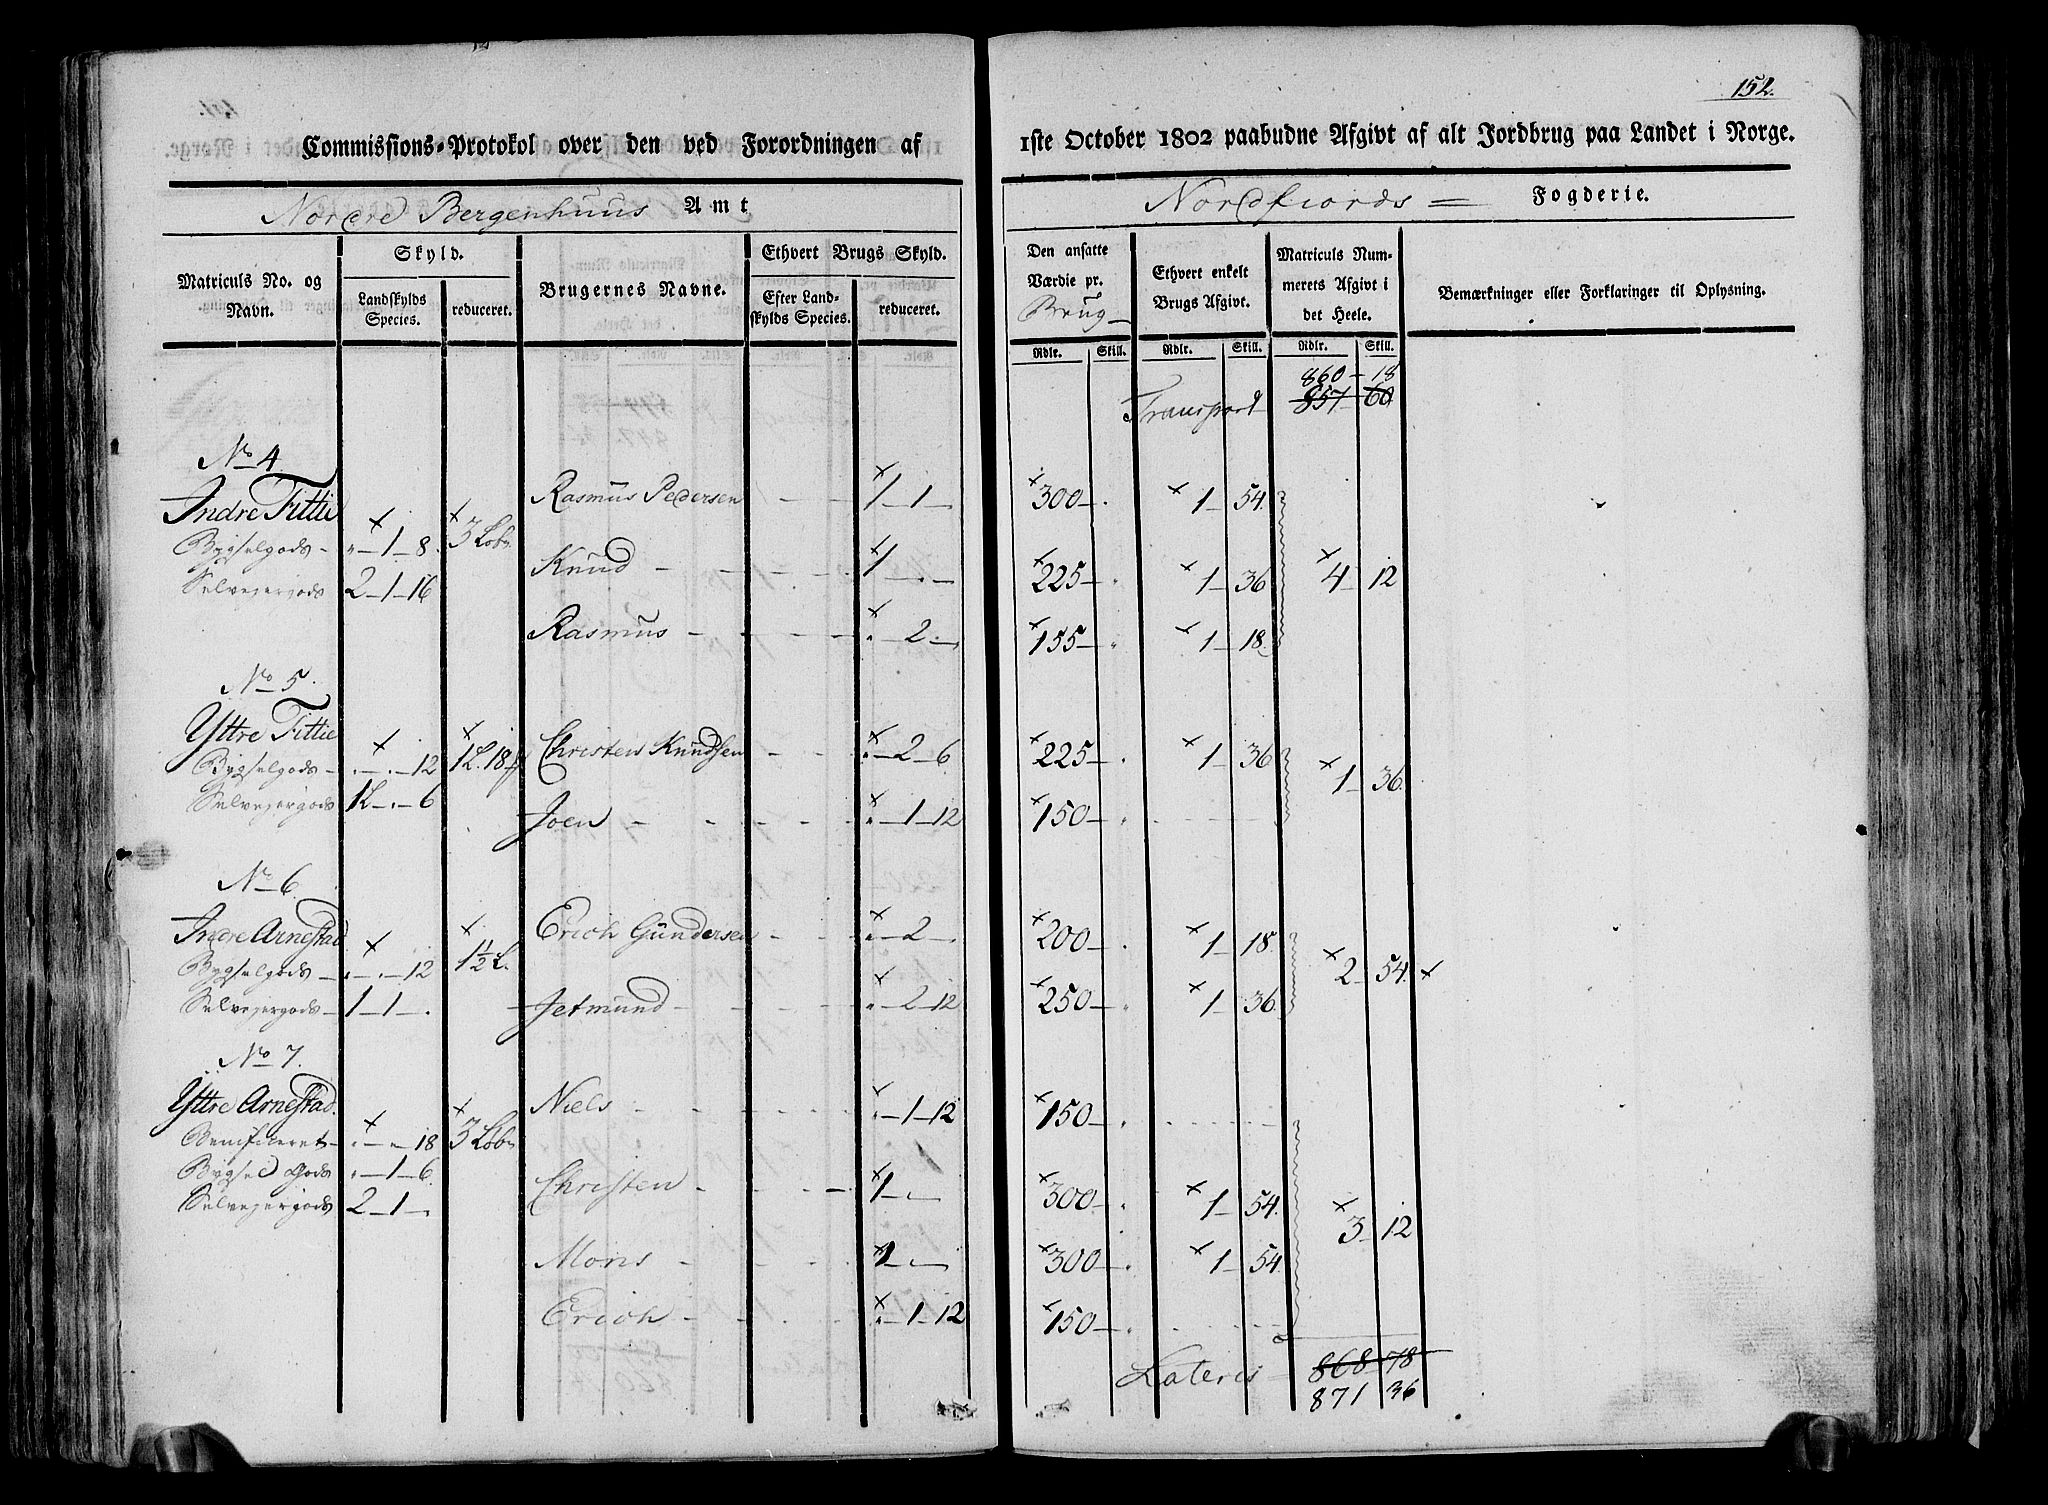 152.
Commissions-Protokol over den ved Forordningen af 1ste October 1802 paabudne Afgivt af alt Jordbrug paa Landet i Norge.
Nordre Bergenhuus Amt
Nordfiords = Fogderie.
Matriculs No. og Navn.
Skyld.
Landskylds Species.
reduceret.
Brugernes Navne.
Ethvert Brugs Skyld.
Efter Landskylds Species.
reduceret.
Den ansatte Værdie pr. Brug
Ethvert enkelt Brugs Afgivt.
Matriculs Nummerets Afgivt i det Heele.
Bemærkninger eller Forklaringer til Oplysning.
Rdlr. Skill. Rdlr. Skill. Rdlr. Skill.
860 - 18
Transport 857 60
No 4
Indre Fittie Rasmus Pedersen 1 - 1 - 300 - 1 - 54.
Bygselgods - " - 1 - 8. 3 Løb.
Knud 1 - . - 225 - 1 - 36 4 - 12
Selveyergods 2 - 1 - 16
Rasmus " - 2 - 155 - 1 - 18.
No 5.
Yttre Fittie Christen Knudsen " - 2 - 6. 225 - 1 - 36
Bygselgods - . - . - 12 1L. 18 1 - 36.
Selveyergods 1L - . - 6
Joen " - 1 - 12 150 -
No 6.
Indre Arnestad Erich Gundersen " - 2 - 200 - 1 - 18.
Bygselgods - . - . - 12 1½ L. 2 - 54.
Selveyergods - 1 - 1 - .
Jetmund " - 2 - 12 250 - 1 - 36.
No 7.
Yttre Arnestad. Niels " - 1 - 12 150 -
Benificeret - . - " - 18 3 Løb
Bygsel Gods " - 1 - 6.
Christen 1 - . - 300 - 1 - 54.
Selveyergods 2 - 1 - . 3 - 12
Mons 1 - . - 300 - 1 - 54.
Erich " - 1 - 12 150 -
Lateris 868 - 78
871 36